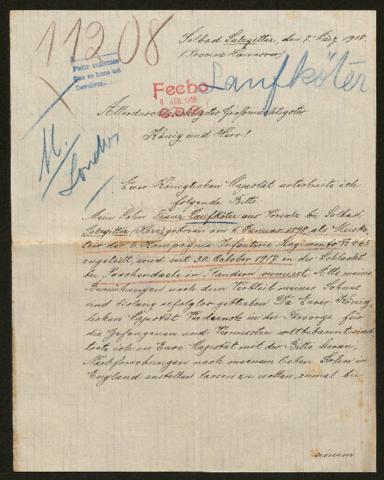 11208
Solbad Salzgitter, den 7. März 1918
(Provinz Hannover)
Laufköter
Fecho
6 ABR. 1918
Allerdurchlauchtigster Großmächtigster
König und Herr!
M.
London
Eurer Königlichen Majestät unterbreite ich
folgende Bitte:
Mein Sohn Franz Laufköter aus bei Solbad
Salzgitter (Harz) geboren am 6. Januar 1898 als
der 6. Kompagnie Infanterie Regiment No 465
zugeteilt, wird seit 30. October 1917 in der Schlacht
bei Paschendaele in Flandern vermisst. Alle meine
nach dem Verbleib meines Sohnes
sind bislang erfolglos geblieben. Da Eurer König-
lichen Majestät in der Fürsorge für
die Gefangenen und Vermissten weltbekannt sind
ich an Eure Majestät mit der Bitte heran,
Nachforschungen nach meinem lieben Sohn in
England anstellen lassen zu wollen, zumal bei